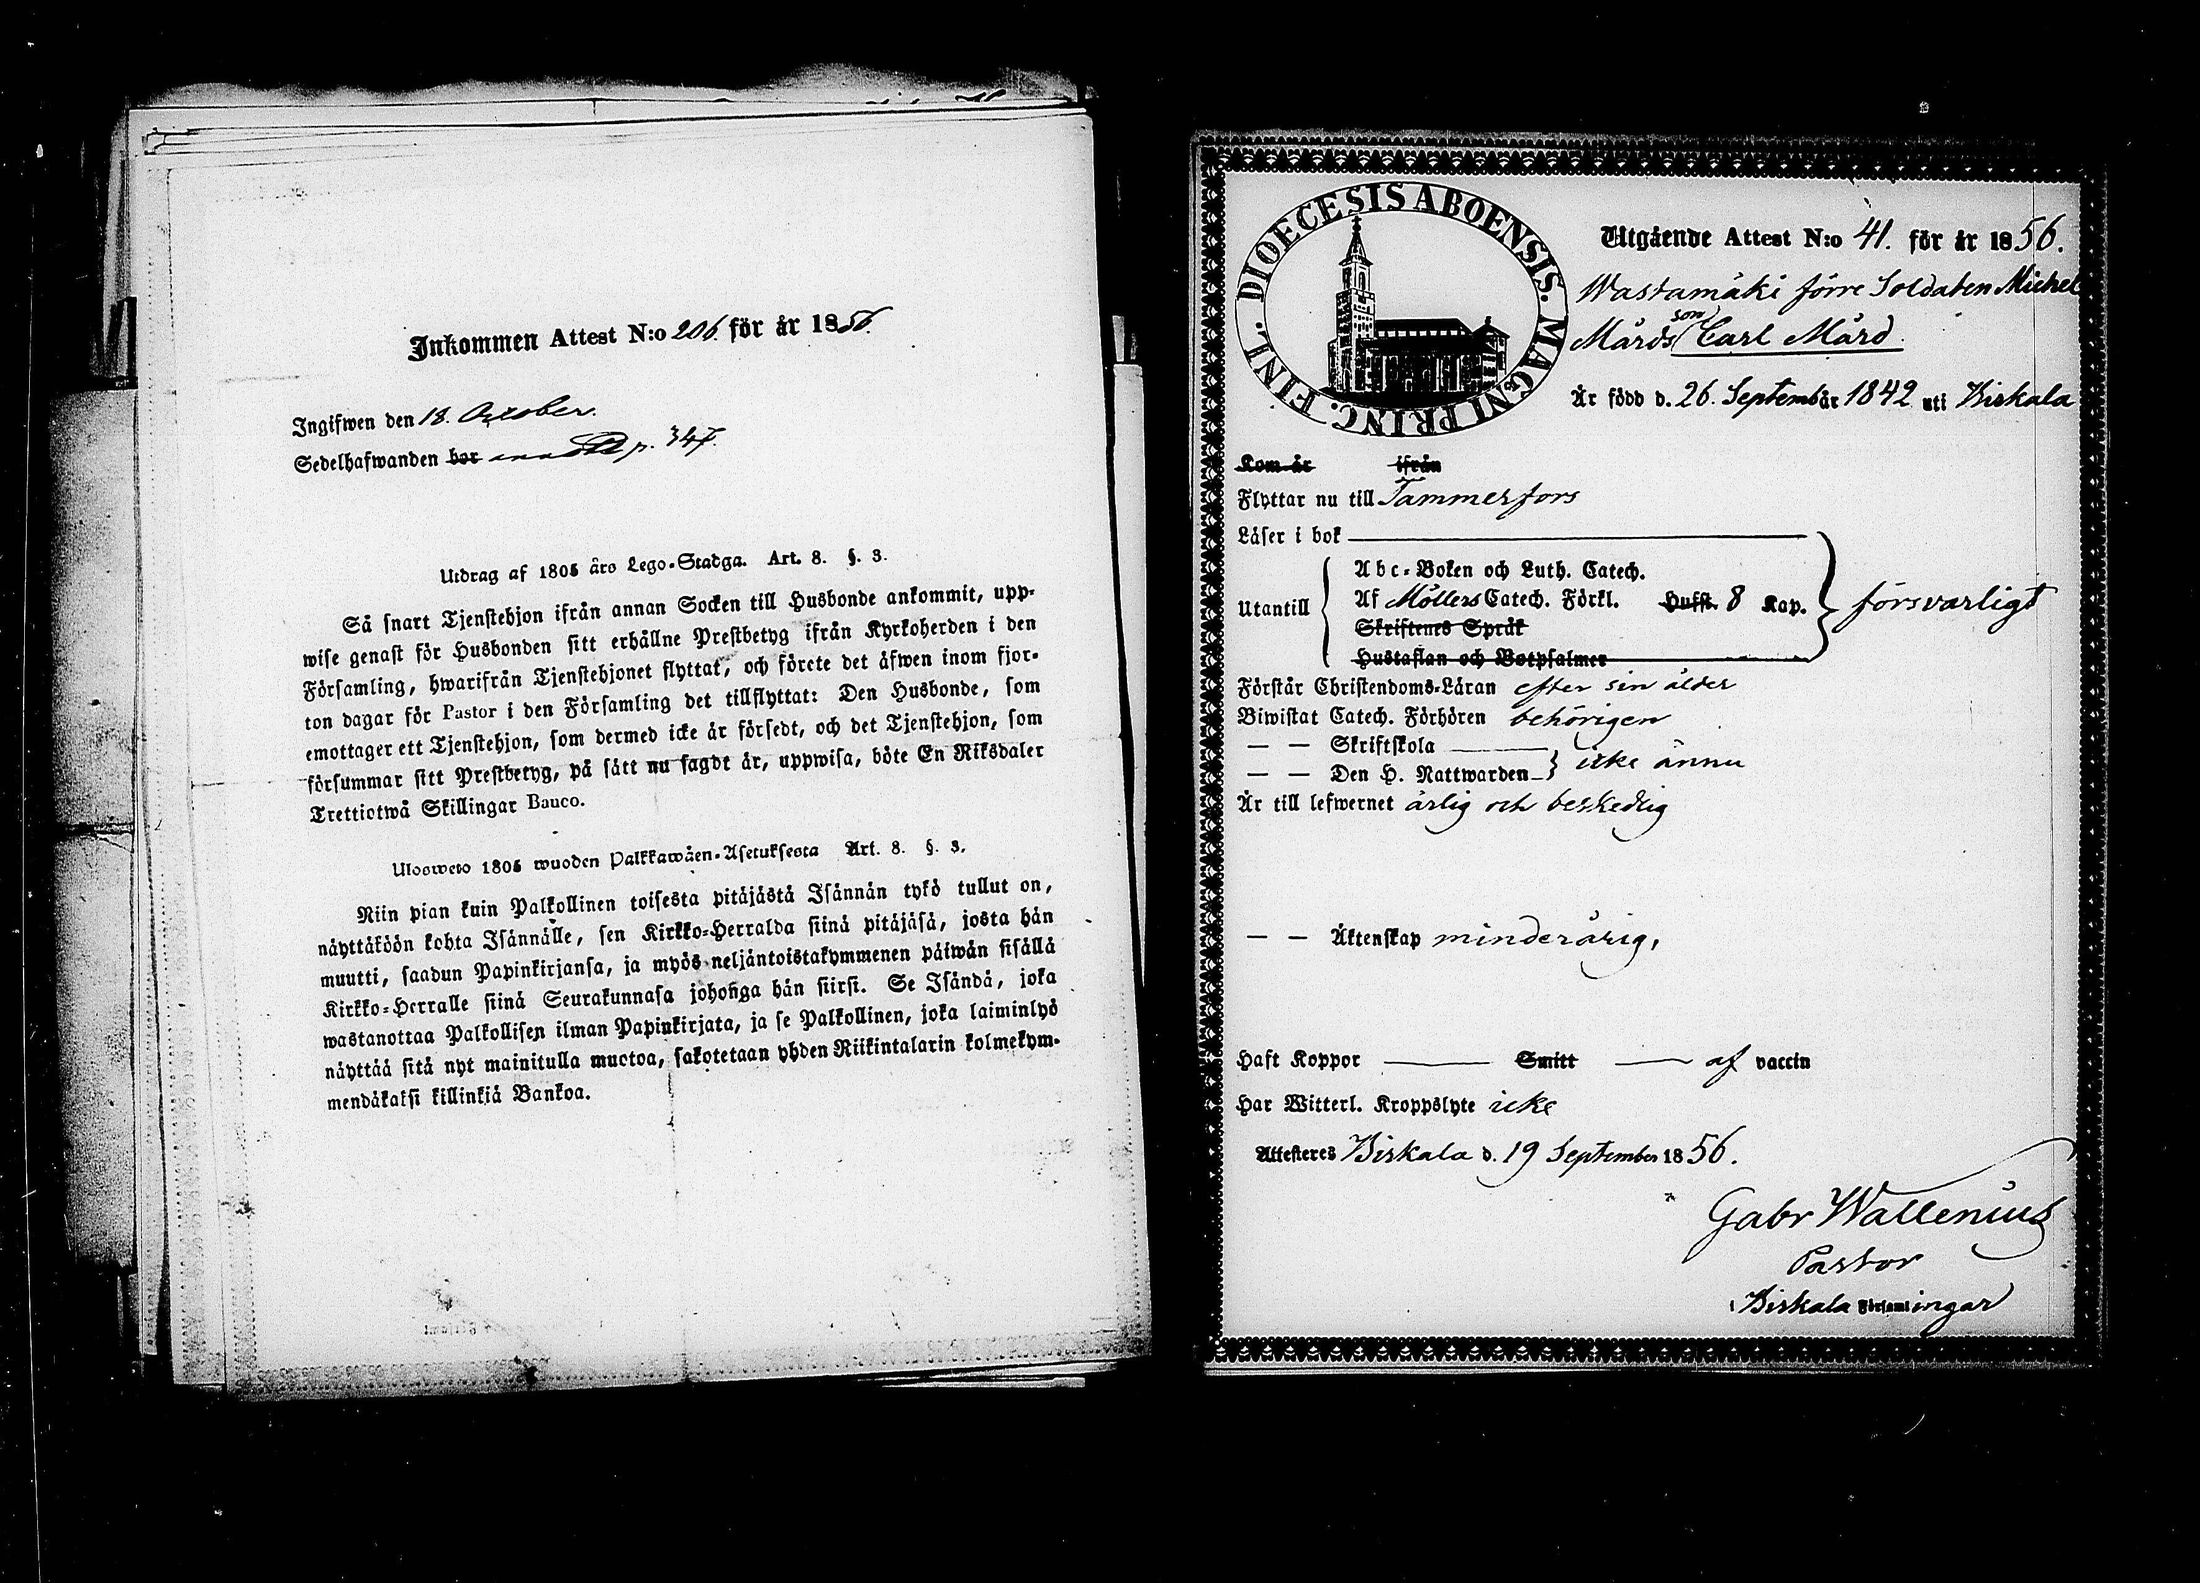 Inkommen Attest N:o 206. för år 1856.
Ingifwen den 18. October.
Sedelhafwanden bor p. 347.
Utdrag af 1805 års Lego-Stadga. Art. 8. §. 3.
Så snart Tjenstehjon ifrån annan Socken till Husbonde ankommit, upp-
wise genast för Husbonden sitt erhållne Prestbetyg ifrån Kyrkoherden i den
Församling, hwarifrån Tjenstehjonet flyttat, och förete det äfwen inom fjor-
ton dagar för Pastor i den Församling det tillflyttat: Den Husbonde, som
emottager ett Tjenstehjon, som dermed icke är försedt, och det Tjenstehjon, som
försummar sitt Prestbetyg, på sätt nu sagdt är, uppwisa, böte En Riksdaler
Trettiotwå Skillingar Banco.
Ulosweto 1805 wuoden Palkkawäen-Asetuksesta Art. 8. §. 3.
Niin pian kuin Palkollinen toisesta pitäjästä Isännän tykö tullut on,
näyttäköön kohta Isännälle, sen Kirkko-Herralda siinä pitäjäsä, josta hän
muutti, saadun Papinkirjansa, ja myös neljäntoistakymmenen päiwän sisällä
Kirkko-Herralle siinä Seurakunnasa johonga hän siirsi. Se Isändä, joka
wastanottaa Palkollisen ilman Papinkirjata, ja se Palkollinen, joka laiminlyö
näyttää sitä nyt mainitulla muotoa, sakotetaan yhden Riikintalarin kolmekym-
mendäkaksi killinkiä Bankoa.
DIOECESIS ABOENSIS. MAGNI PRINC. FINL.
Utgående Attest N:o 41. för år 1856.
Wastamäki förre Soldaten Michel
Mårds son Carl Mård
Är född d. 26. Septemb år 1842 uti Birkala
Kom år ifrån
Flyttar nu till Tammerfors
Läser i bok
Utantill
Abc-Boken och Luth. Catech.
Af Möllers Catech. Förkl. Hufst. 8 Kap.
Skriftenes Språk
Hustaflan och Botpsalmer
försvarligt
Förstår Christendoms-Läran efter sin ålder
Biwistat Catech. Förhören behörigen
— — Skriftskola
— — Den H. Nattwarden
icke ännu
Är till lefwernet ärlig och beskedlig
— — Äktenskap minderårig,
Haft Koppor Smitt af vaccin
Har Witterl. Kroppslyte icke
Attesteres Birkala d. 19 September 1856.
Gabr Wallenius
Pastor
i Birkala Församlingar